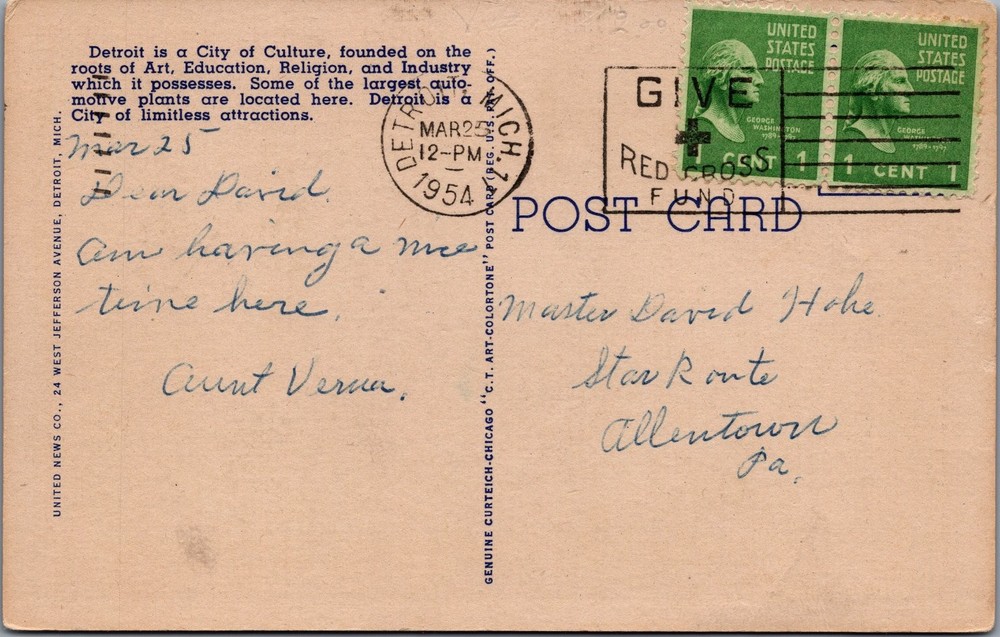 Detroit is a City of Culture, founded on the
roots of Art, Education, Religion, and Industry
which it possesses. Some of the largest auto-
motive plants are located here. Detroit is a
City of limitless attractions.
Mar 25
Dear David.
Am having a nice
time here.
Aunt Verna.
UNITED NEWS CO., 24 WEST JEFFERSON AVENUE, DETROIT, MICH.
GENUINE CURTEICH-CHICAGO "C.T. ART-COLORTONE" POST CARD (REG. U.S. PAT. OFF.)
DETROIT, MICH. 1
MAR 25
12-PM
1954
GIVE
RED CROSS
FUND
UNITED
STATES
POSTAGE
GEORGE
WASHINGTON
1789-1797
CENT 1
UNITED
STATES
POSTAGE
GEORGE
WASHINGTON
1789-1797
1 CENT 1
POST CARD
Master David Hohe
Star Route
Allentown
Pa.